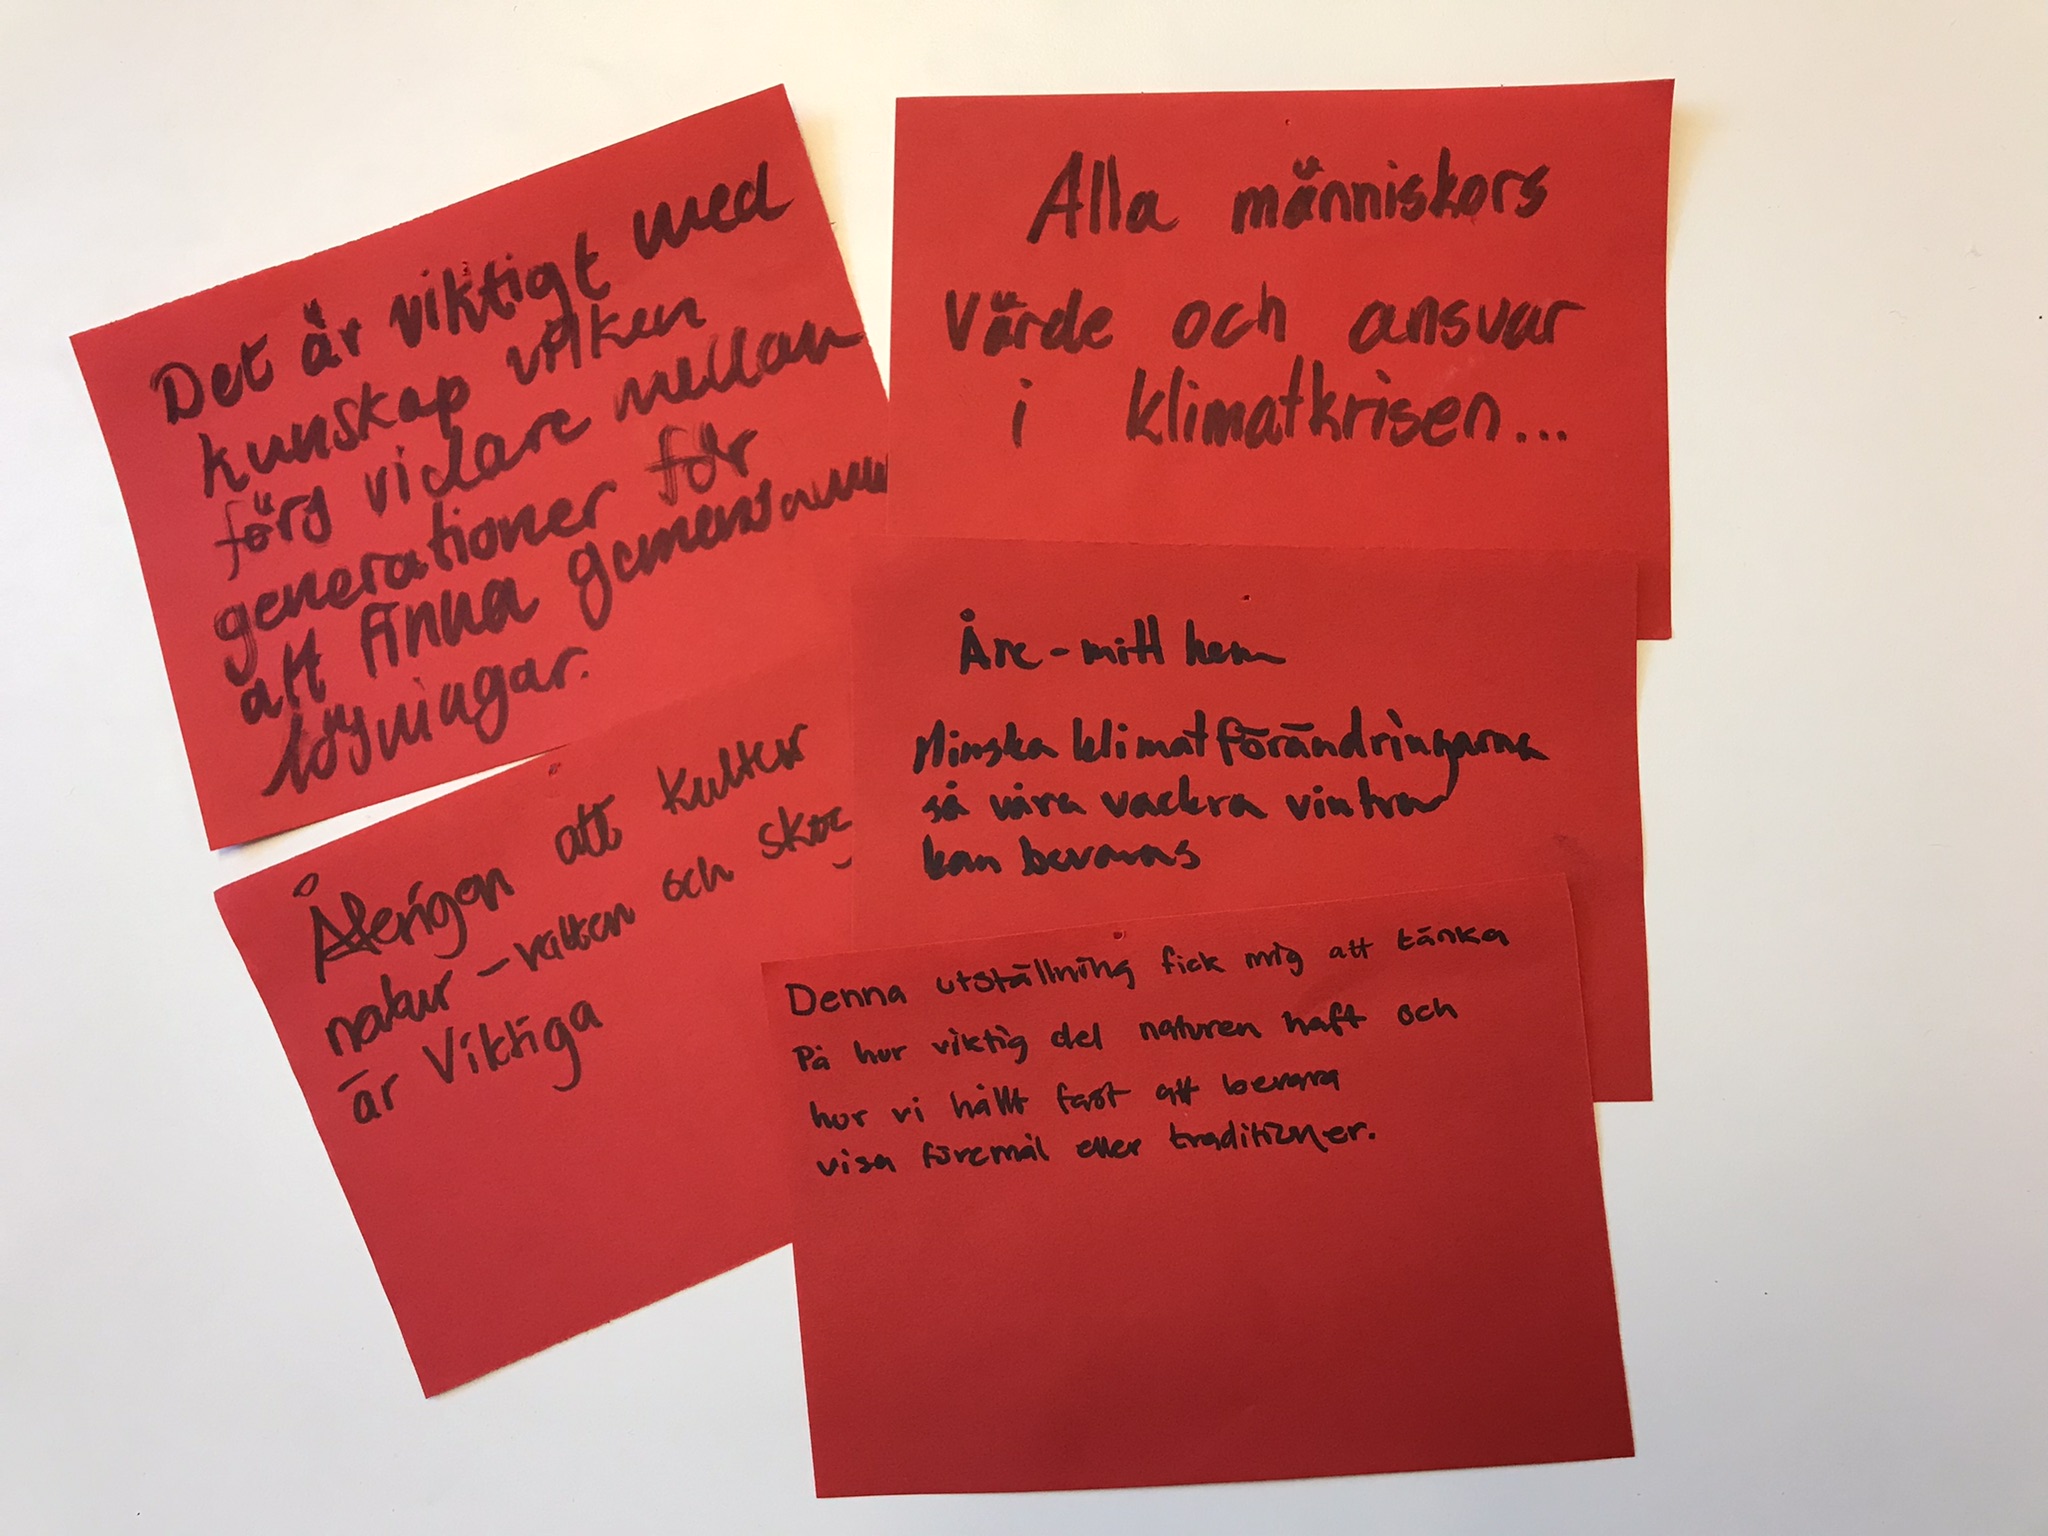 Det är viktigt med
kunskap vilken
förs vidare mellan
generationer för
att finna gemensamma
lösningar.
Alla människors
värde och ansvar
i klimatkrisen...
Återigen att kultur
natur-vatten och skog
är viktiga
Åre - mitt hem
Minska klimatförändringarna
så våra vackra vintrar
kan bevaras
Denna utställning fick mig att tänka
På hur viktig del naturen haft och
hur vi hållt fast att bevara
visa föremål eller traditioner.